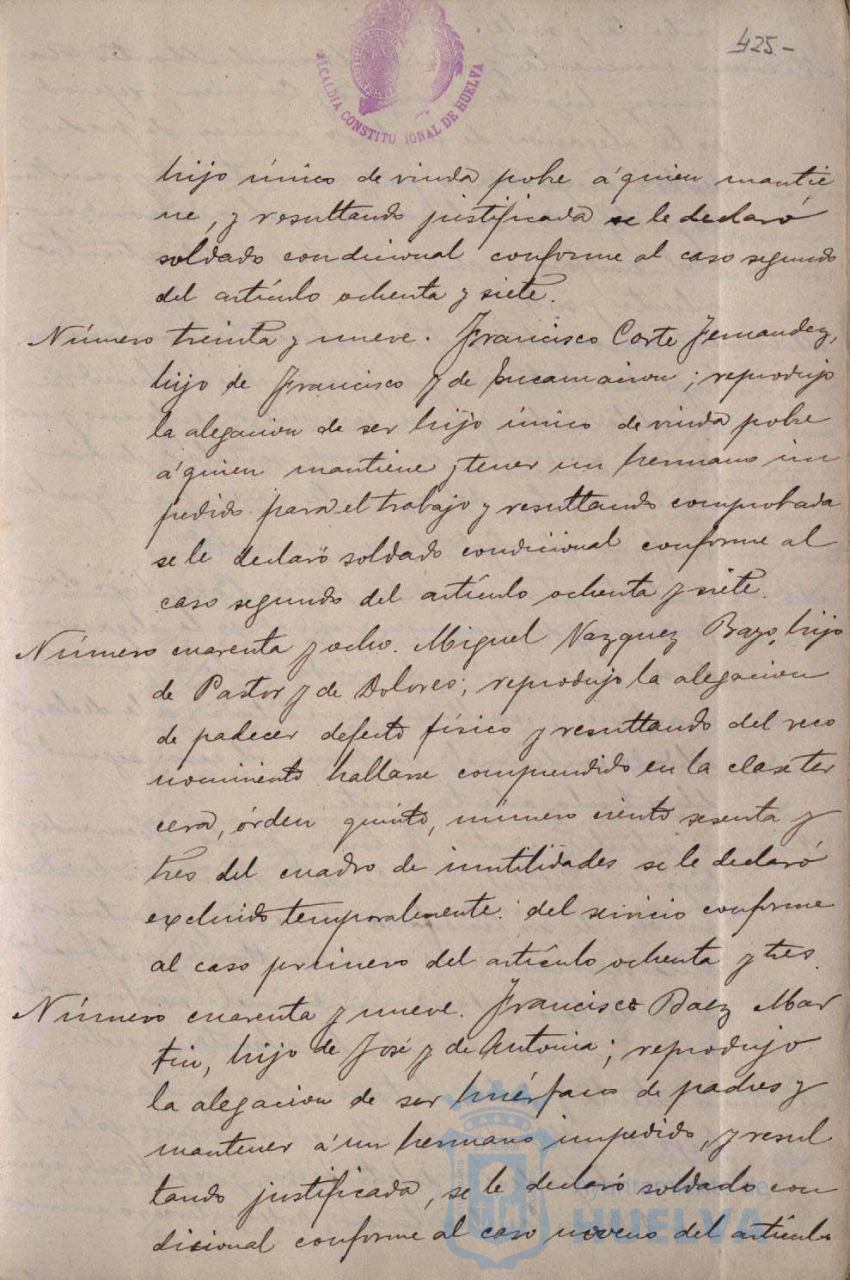 425-
ALCALDIA CONSTITUCIONAL DE HUELVA
hijo único de viuda pobre á quien mantie
ne, y resultando justificada se le declaró
soldado condicional conforme al caso segundo
del artículo ochenta y siete.
Número treinta y nueve. Francisco Corte Fernandez,
hijo de Francisco y de Encarnacion; reprodujo
la alegacion de ser hijo único de viuda pobre
á quien mantiene y tener un hermano im
pedido para el trabajo y resultando comprobada
se le declaró soldado condicional conforme al
caso segundo del artículo ochenta y siete.
Número cuarenta y ocho. Miguel Vazquez Bazo, hijo
de Pastor y de Dolores; reprodujo la alegacion
de padecer defecto físico y resultando del reco
nocimiento hallarse comprendido en la clase ter
cera, órden quinto, número ciento sesenta y
tres del cuadro de inutilidades se le declaró
excluido temporalmente del servicio conforme
al caso primero del artículo ochenta y tres.
Número cuarenta y nueve. Francisco Baez Mar
tin, hijo de José y de Antonia; reprodujo
la alegacion de ser huérfano de padres y
mantener á un hermano impedido, y resul
tando justificada, se le declaró soldado con
dicional conforme al caso noveno del artículo
HUELVA